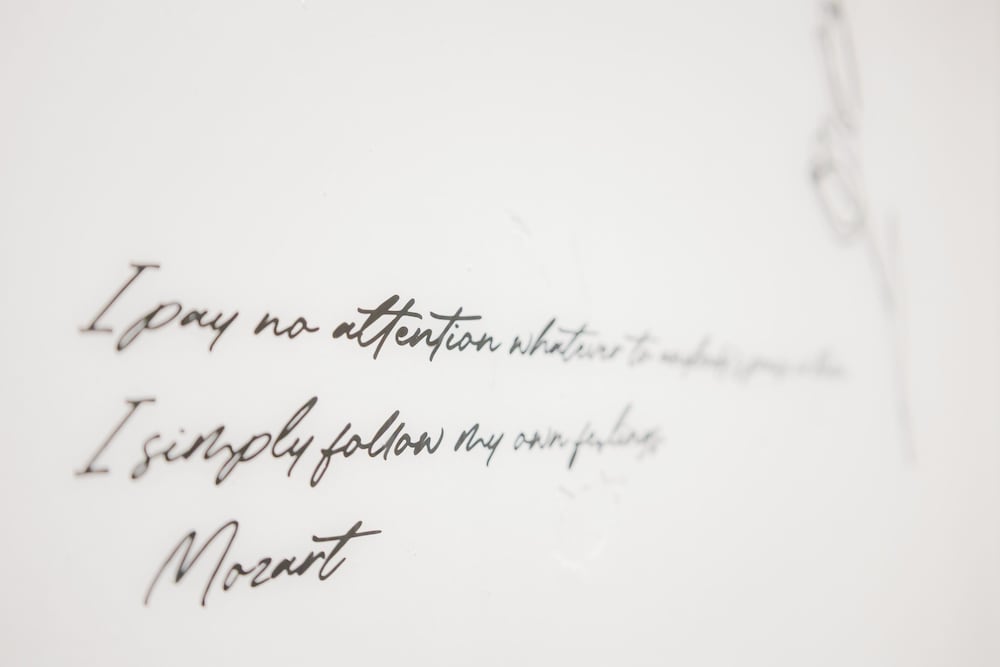 I pay no attention whatever to
I simply follow my own feelings
Mozart